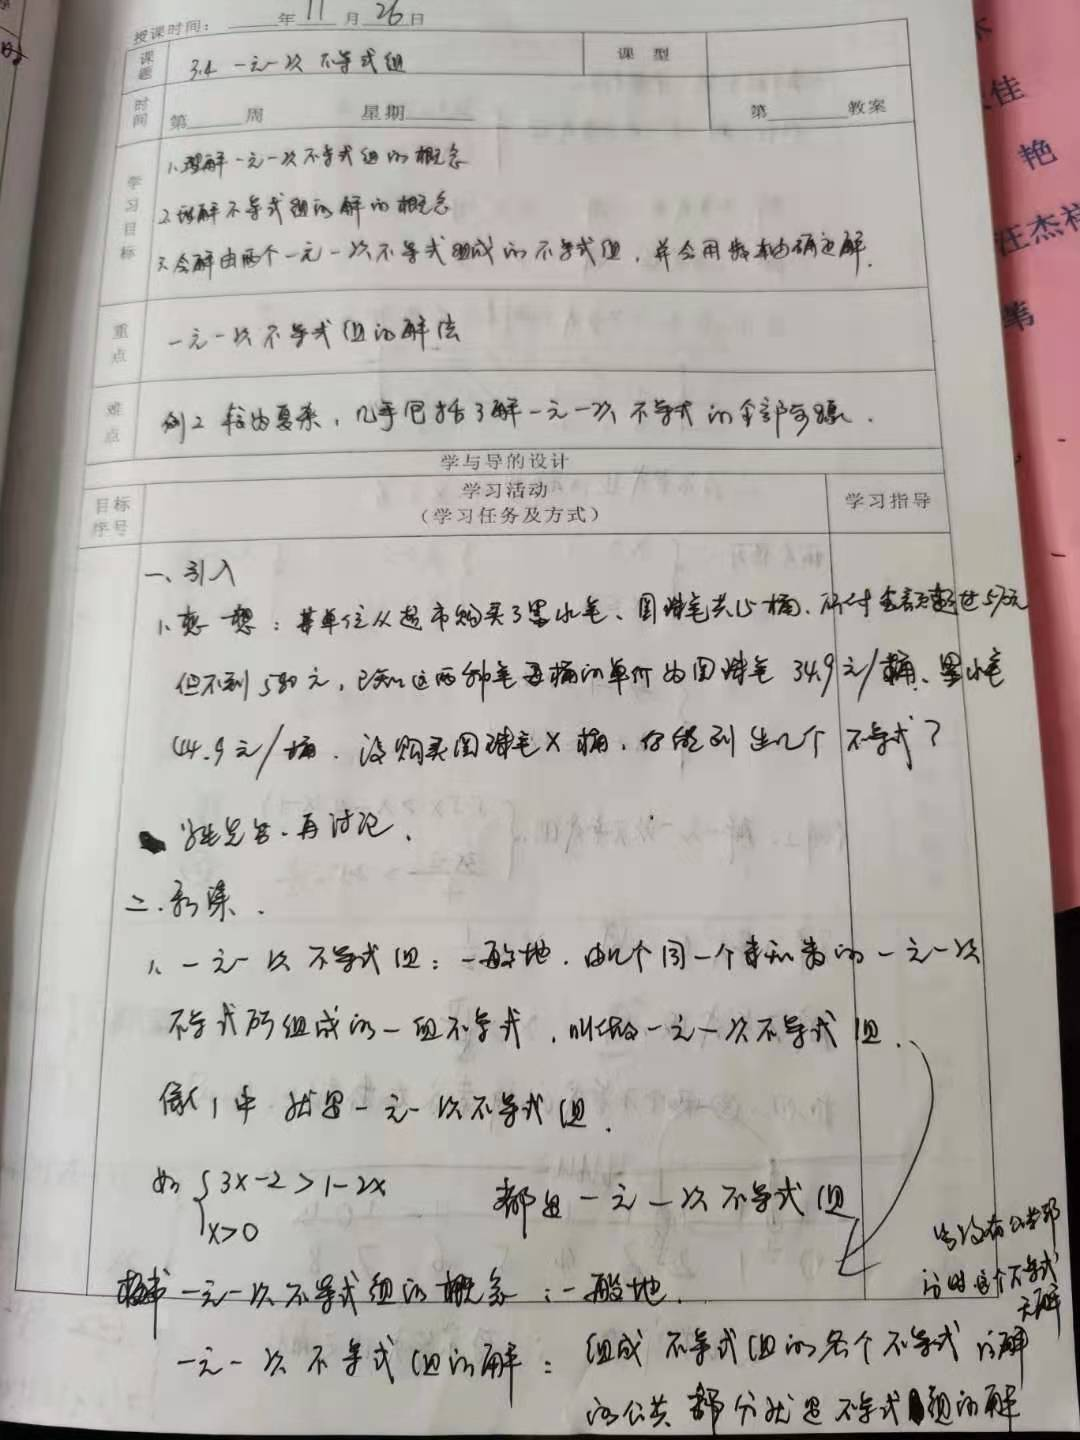 授课时间：____年 11 月 26 日
课题 3.4 一元一次不等式组 课型
时间 第____周 星期____ 第____教案
学习目标 1.理解一元一次不等式组的概念
2.理解不等式组的解的概念
3.会解由两个一元一次不等式组成的不等式组，并会用数轴确定解.
重点 一元一次不等式组的解法
难点 例2较为复杂，几乎包括了解一元一次不等式的全部步骤.
学与导的设计
目标序号 学习活动 学习指导
（学习任务及方式）
一、引入
1.想一想：某单位从超市购买了墨水笔、圆珠笔共15桶，所付金额超过570元
但不到580元，已知这两种笔每桶的单价为圆珠笔34.9元/桶、墨水笔
44.9元/桶.设购买圆珠笔X桶，你能列出几个不等式？
学生先答.再讨论.
二.新课.
1.一元一次不等式组：一般地.由几个同一个未知数的一元一次
不等式所组成的一组不等式，叫做一元一次不等式组.
像1中就是一元一次不等式组.
如{3x-2>1-2x
x>0 都是一元一次不等式组
板书 一元一次不等式组的概念：一般地.
当没有公共部
分时这个不等式
无解
一元一次不等式组的解：组成不等式组的各个不等式的解
的公共部分就是不等式组的解
佳
艳
汪杰